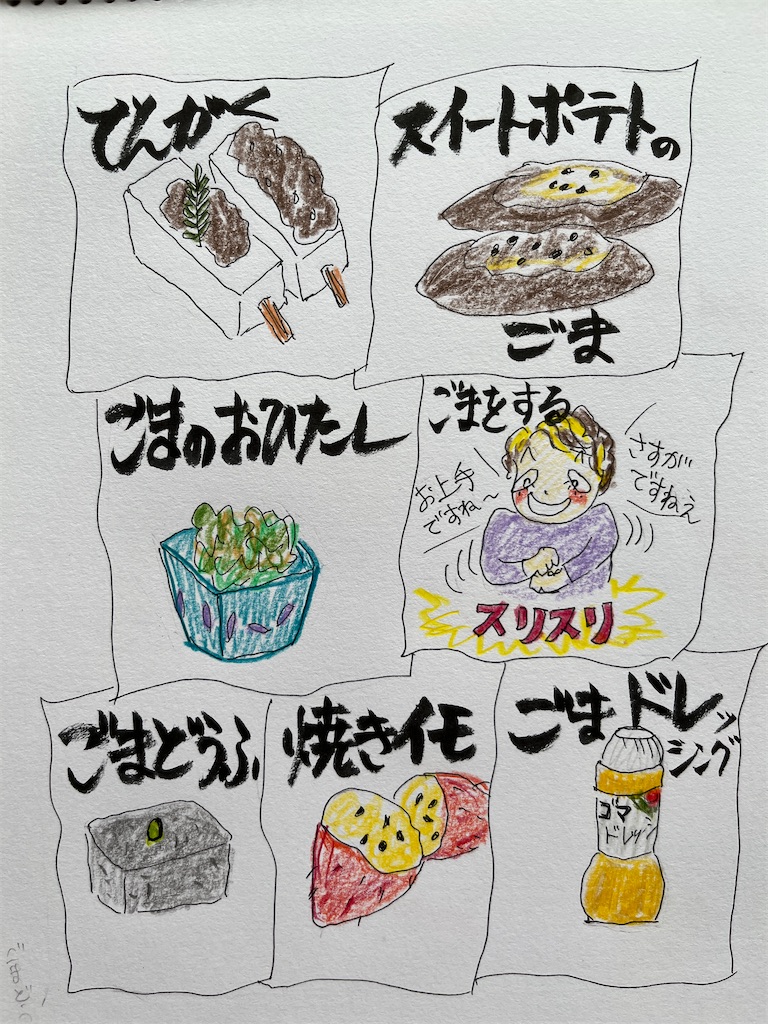 でんがく
スイートポテトの
ごま
ごまのおひたし
ごまをする
お上手
ですね〜
さすが
ですねぇ
スリスリ
ごまどうふ
焼きイモ
ごまドレッ
シング
ゴマ